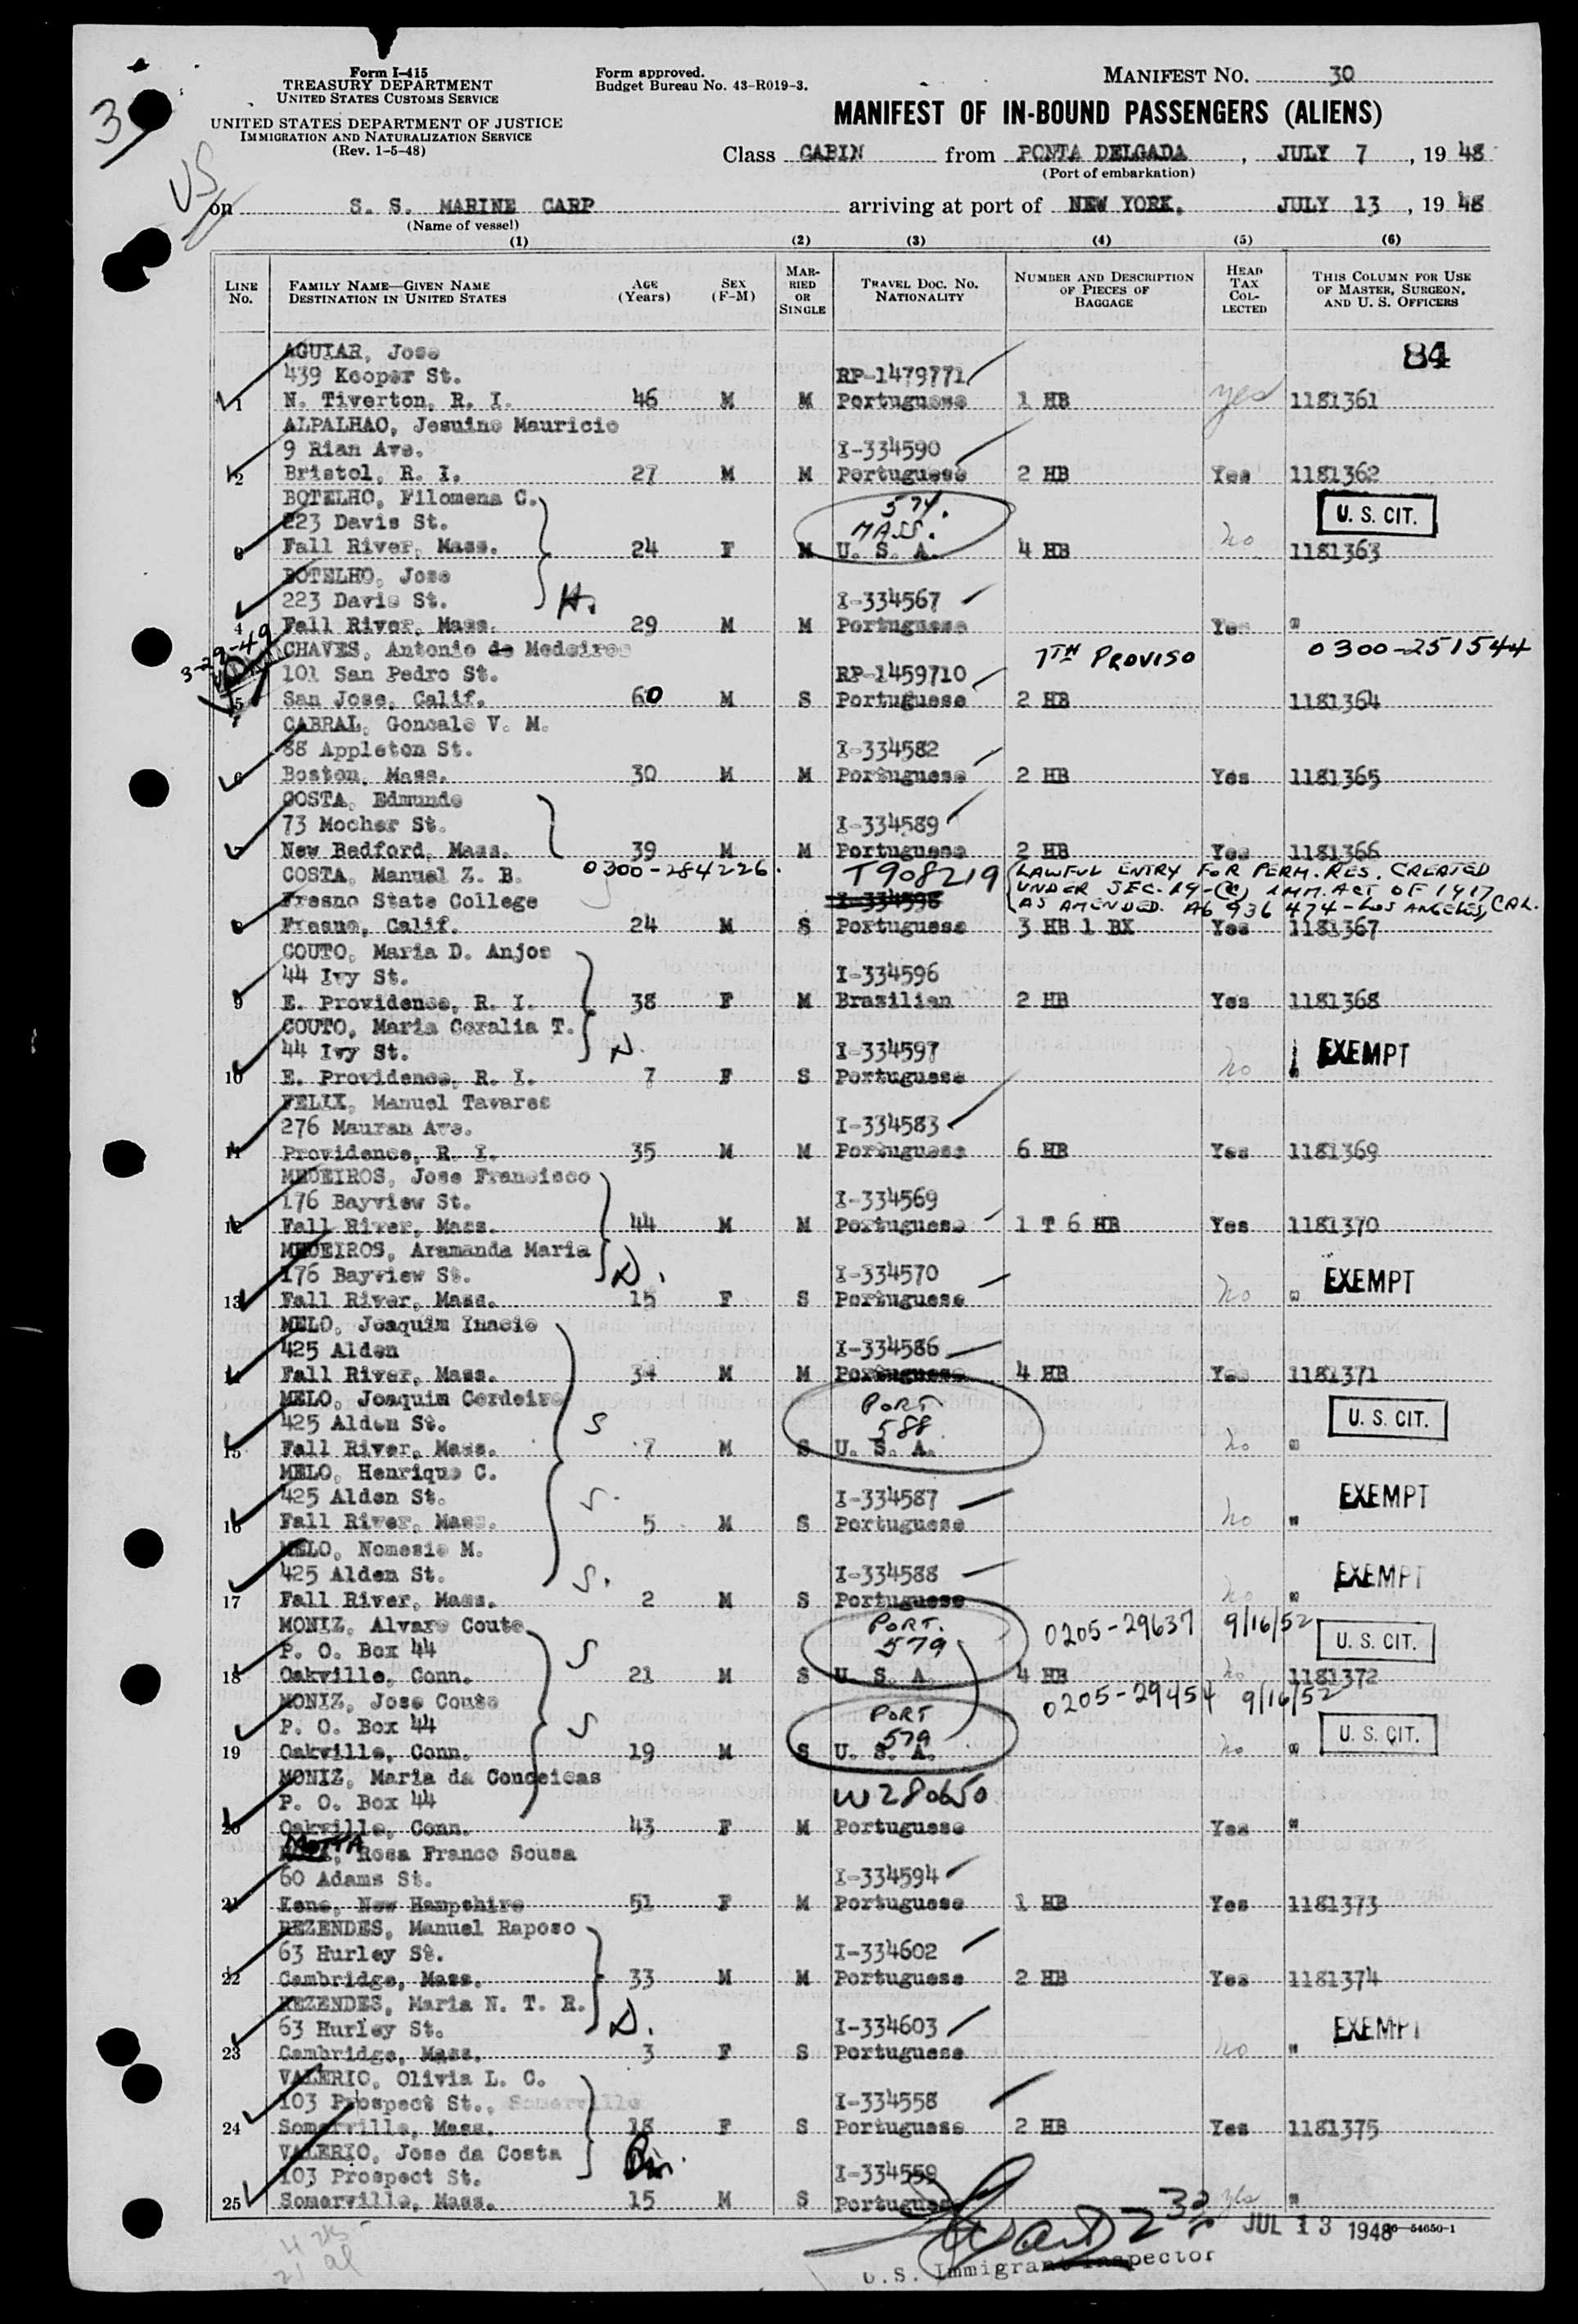 Form I-415
TREASURY DEPARTMENT
UNITED STATES CUSTOMS SERVICE
UNITED STATES DEPARTMENT OF JUSTICE
IMMIGRATION AND NATURALIZATION SERVICE
(Rev. 1-5-48)
Form approved.
Budget Bureau No. 43-R019-3.
MANIFEST NO. 30
MANIFEST OF IN-BOUND PASSENGERS (ALIENS)
Class CABIN from PONTA DELGADA, JULY 7, 19 48
(Port of embarkation)
on S. S. MARINE CARP arriving at port of NEW YORK, JULY 13, 19 48
(Name of vessel)
(1) (2) (3) (4) (5) (6)
LINE No. FAMILY NAME—GIVEN NAME DESTINATION IN UNITED STATES AGE (Years) SEX (F-M) MARRIED OR SINGLE TRAVEL DOC. NO. NATIONALITY NUMBER AND DESCRIPTION OF PIECES OF BAGGAGE HEAD TAX COLLECTED THIS COLUMN FOR USE OF MASTER, SURGEON, AND U. S. OFFICERS
84
AGUIAR, Jose
439 Kooper St. RP-1479771
1 N. Tiverton, R. I. 46 M M Portuguese 1 HB yes 1181361
ALPALHAO, Jesuino Mauricio
9 Rian Ave. I-334590
2 Bristol, R. I. 27 M M Portuguese 2 HB Yes 1181362
BOTELHO, Filomena C. 574. U. S. CIT.
223 Davis St. MASS.
3 Fall River, Mass. 24 F M U. S. A. 4 HB no 1181363
BOTELHO, Jose
223 Davis St. H. I-334567
4 Fall River, Mass. 29 M M Portuguese Yes "
3-29-49 CHAVES, Antonio de Medeiros 7TH PROVISO 0300-251544
101 San Pedro St. RP-1459710
5 San Jose, Calif. 60 M S Portuguese 2 HB 1181364
CABRAL, Goncalo V. M.
88 Appleton St. I-334582
6 Boston, Mass. 30 M M Portuguese 2 HB Yes 1181365
COSTA, Edmundo
73 Mosher St. I-334589
7 New Bedford, Mass. 39 M M Portuguese 2 HB Yes 1181366
COSTA, Manuel Z. B. 0300-284226. T908219 LAWFUL ENTRY FOR PERM. RES. CREATED
Fresno State College I-334598 UNDER SEC. 19-(C) IMM. ACT OF 1917
AS AMENDED. A6 936 474-LOS ANGELES, CAL.
8 Fresno, Calif. 24 M S Portuguese 3 HB 1 BX Yes 1181367
COUTO, Maria D. Anjos
44 Ivy St. I-334596
9 E. Providence, R. I. 38 F M Brazilian 2 HB Yes 1181368
COUTO, Maria Coralia T.
44 Ivy St. D. I-334597 EXEMPT
10 E. Providence, R. I. 7 F S Portuguese no "
FELIX, Manuel Tavares
276 Mauran Ave. I-334583
11 Providence, R. I. 35 M M Portuguese 6 HB Yes 1181369
MEDEIROS, Jose Francisco
176 Bayview St. I-334569
12 Fall River, Mass. 44 M M Portuguese 1 T 6 HB Yes 1181370
MEDEIROS, Aramanda Maria
176 Bayview St. D. I-334570 EXEMPT
13 Fall River, Mass. 15 F S Portuguese no "
MELO, Joaquim Inacio
425 Alden I-334586
14 Fall River, Mass. 34 M M Portuguese 4 HB Yes 1181371
MELO, Joaquim Cordeiro PORT
425 Alden St. S 588 U. S. CIT.
15 Fall River, Mass. 7 M S U. S. A. no "
MELO, Henrique C.
425 Alden St. S. I-334587 EXEMPT
16 Fall River, Mass. 5 M S Portuguese no "
MELO, Nomesio M.
425 Alden St. S. I-334588 EXEMPT
17 Fall River, Mass. 2 M S Portuguese no "
MONIZ, Alvaro Couto PORT. 0205-29637 9/16/52
P. O. Box 44 S 579 U. S. CIT.
18 Oakville, Conn. 21 M S U. S. A. 4 HB no 1181372
MONIZ, Jose Couto PORT 0205-29454 9/16/52
P. O. Box 44 S 579 U. S. CIT.
19 Oakville, Conn. 19 M S U. S. A. no "
MONIZ, Maria da Conceicas
P. O. Box 44 W280650
20 Oakville, Conn. 43 F M Portuguese Yes "
MOTTA, Rosa Franco Sousa
60 Adams St. I-334594
21 Kene, New Hampshire 51 F M Portuguese 1 HB Yes 1181373
REZENDES, Manuel Raposo
63 Hurley St. I-334602
22 Cambridge, Mass. 33 M M Portuguese 2 HB Yes 1181374
REZENDES, Maria N. T. R.
63 Hurley St. D. I-334603 EXEMPT
23 Cambridge, Mass. 3 F S Portuguese no "
VALERIO, Olivia L. C.
103 Prospect St., Somerville I-334558
24 Somerville, Mass. 18 F S Portuguese 2 HB Yes 1181375
VALERIO, Jose da Costa
103 Prospect St. I-334559
25 Somerville, Mass. 15 M S Portuguese yes "
JUL 13 1948 16—54650-1
U.S. Immigrant Inspector